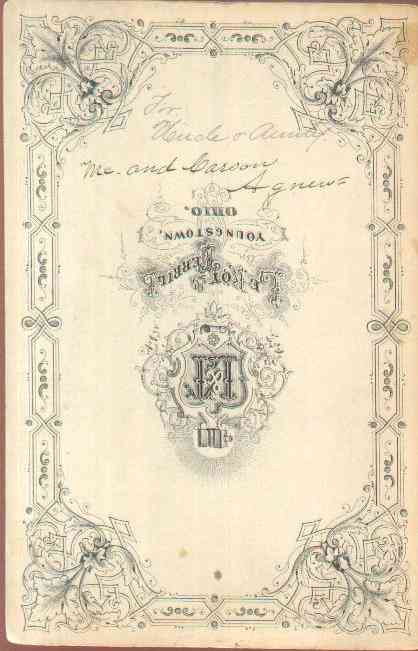 For
Uncle & Aunty
Me. and Carson
Agnew=
Le Roy
Youngstown,
Ohio.